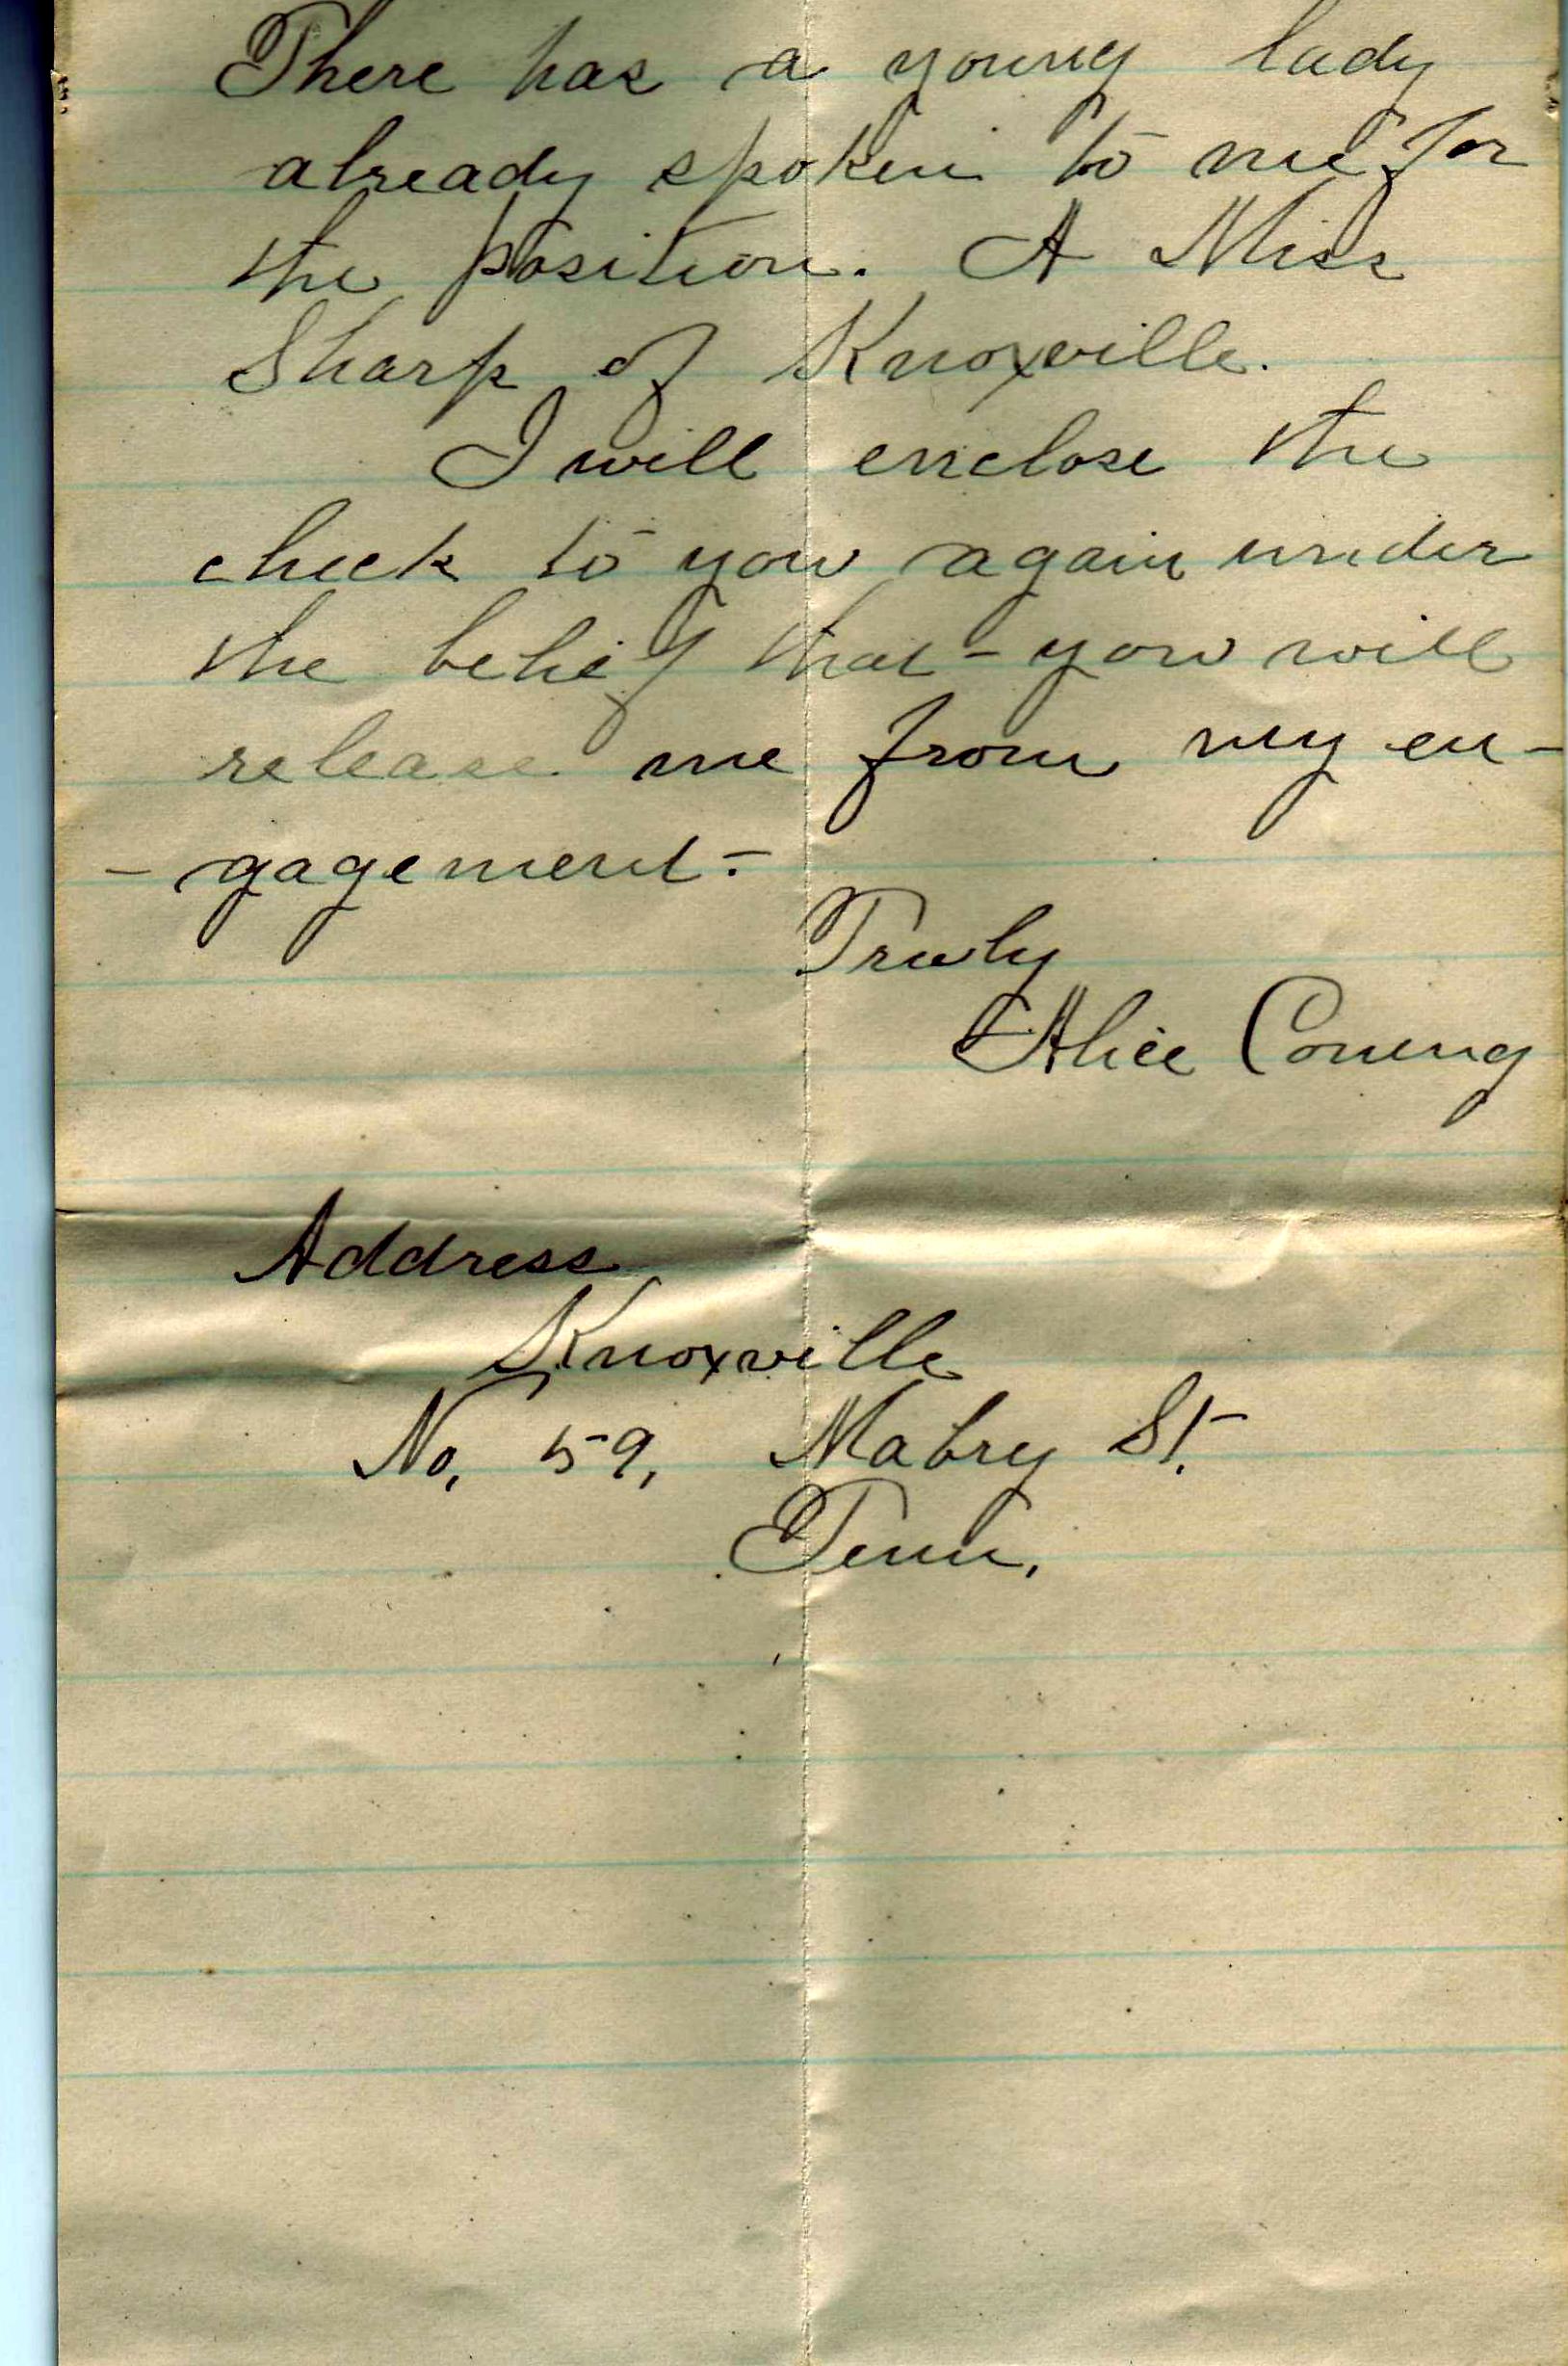 There has a young lady
already spoken to me for
the position. A Miss
Sharp of Knoxville.
I will enclose the
check to you again under
the belief that you will
release me from my en-
-gagement.
Truly
Alice
Address
Knoxville
No. 59, Mabry St.
Tenn.